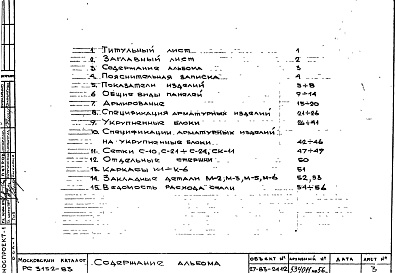 1. Титульный лист 1
2. Заглавный лист 2
3. Содержание альбома 3
4. Пояснительная записка 4
5. Показатели изделий 5÷8
6. Общие виды панелей 9÷14
7. Армирование 15÷20
8. Спецификация арматурных изделий 21÷26
9. Укрупненные блоки 26÷41
10. Спецификации арматурных изделий
на укрупненные блоки 42÷46
11. Сетки С-10, С-21÷С-24, СК-11 47÷49
12. Отдельные стержни 50
13. Каркасы К1÷К-6 51
14. Закладные детали М-2, М-3, М-5, М-6 52, 53
15. Ведомость расхода стали 54÷56
Московский каталог
РС 3152-83
Содержание альбома
Объект №
Архивный №
Дата
Лист №
3